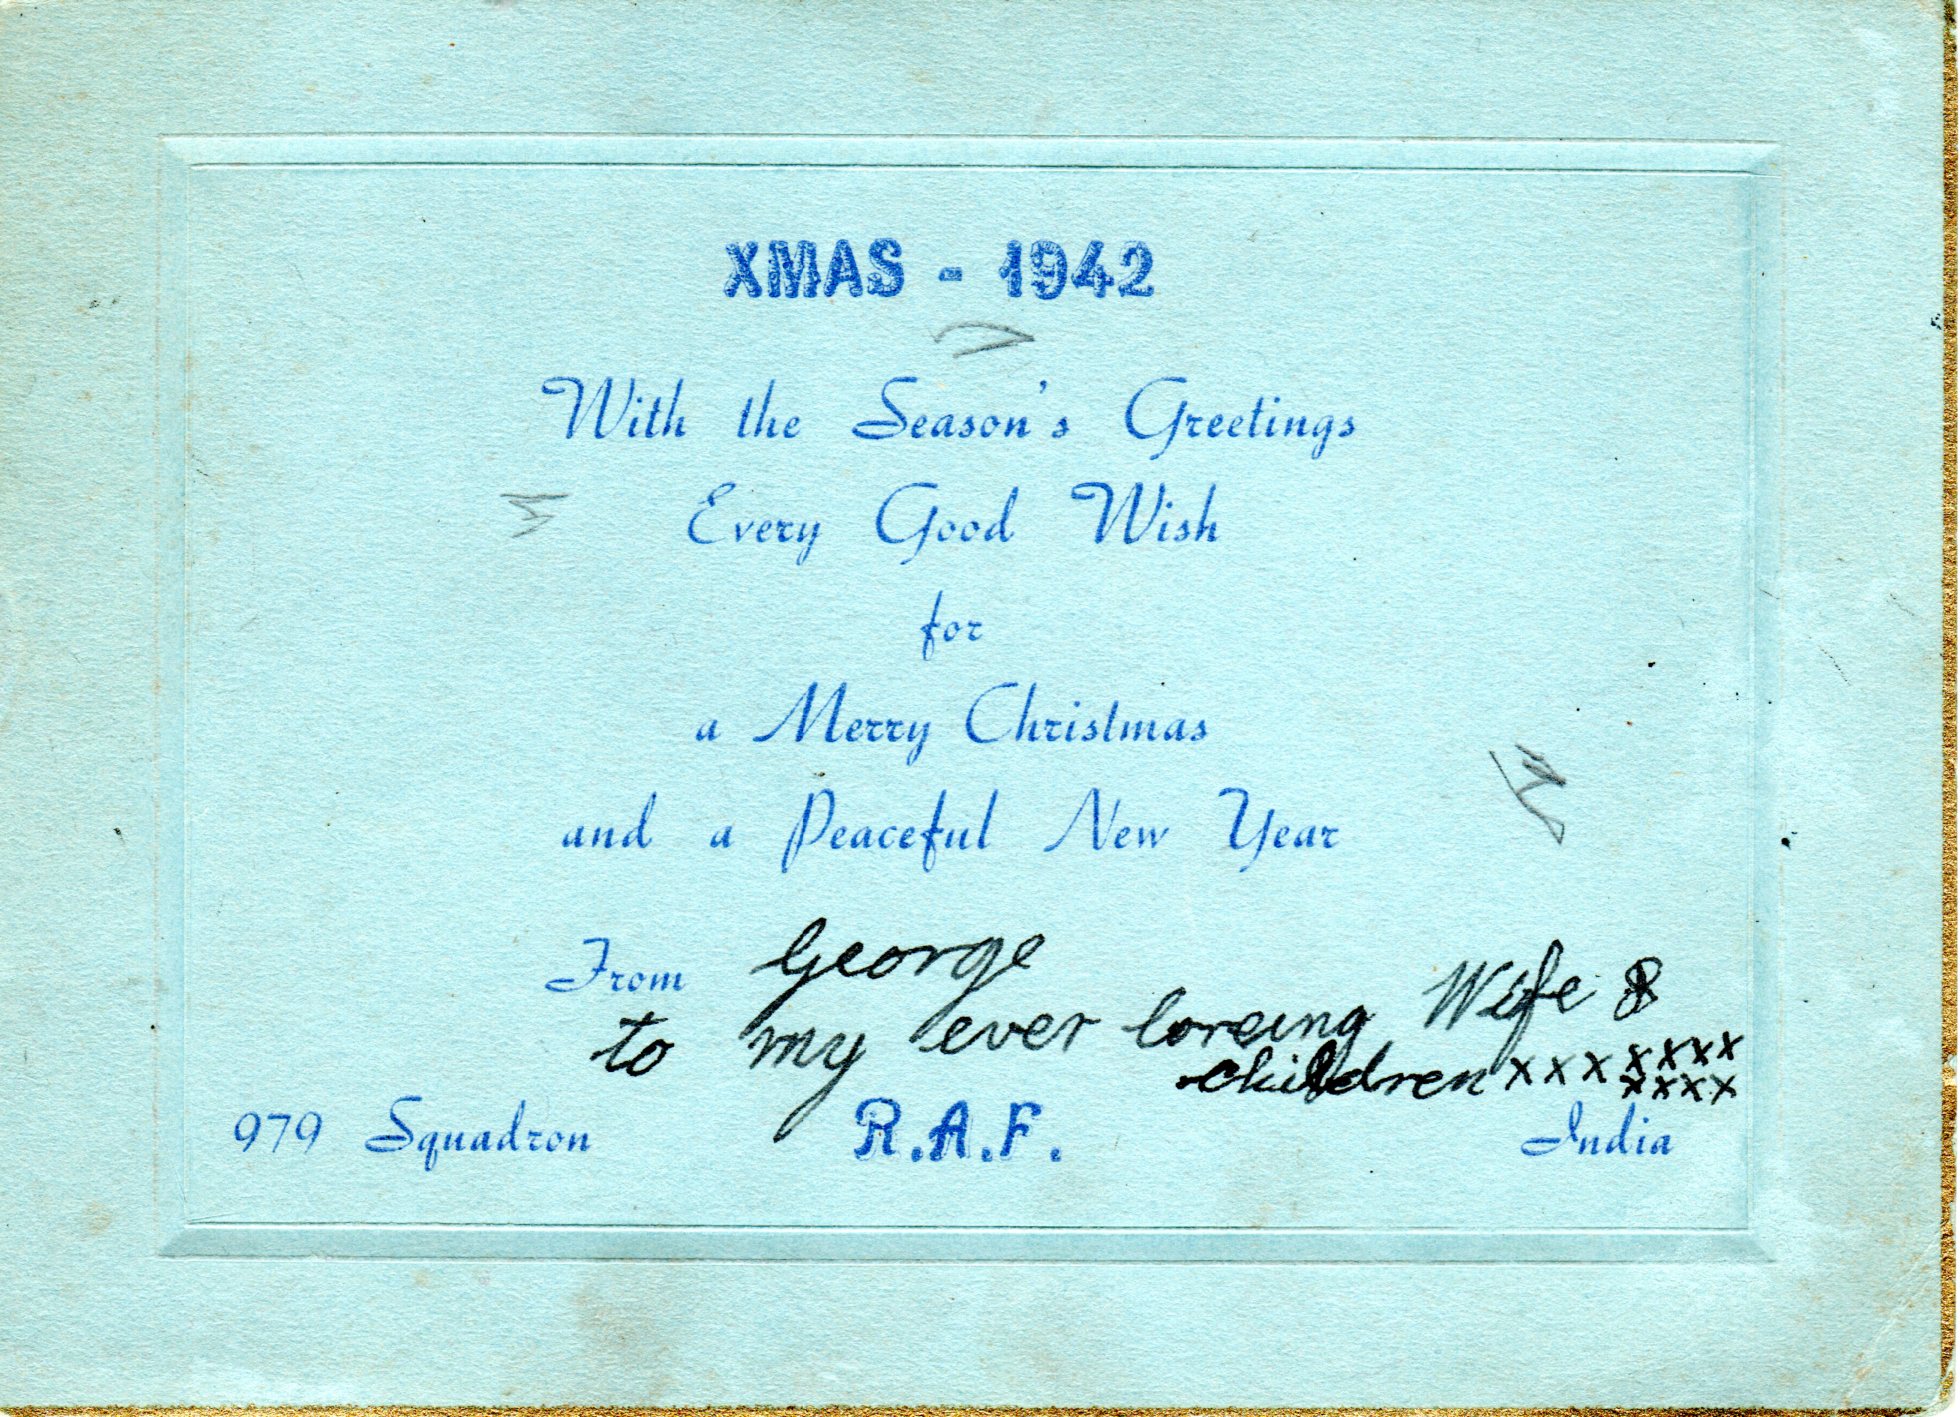 XMAS - 1942
With the Season's Greetings
Every Good Wish
for
a Merry Christmas
and a Peaceful New Year
From George
to my ever loveing Wife &
children x x x x x x x
x x x x
979 Squadron R.A.F. India